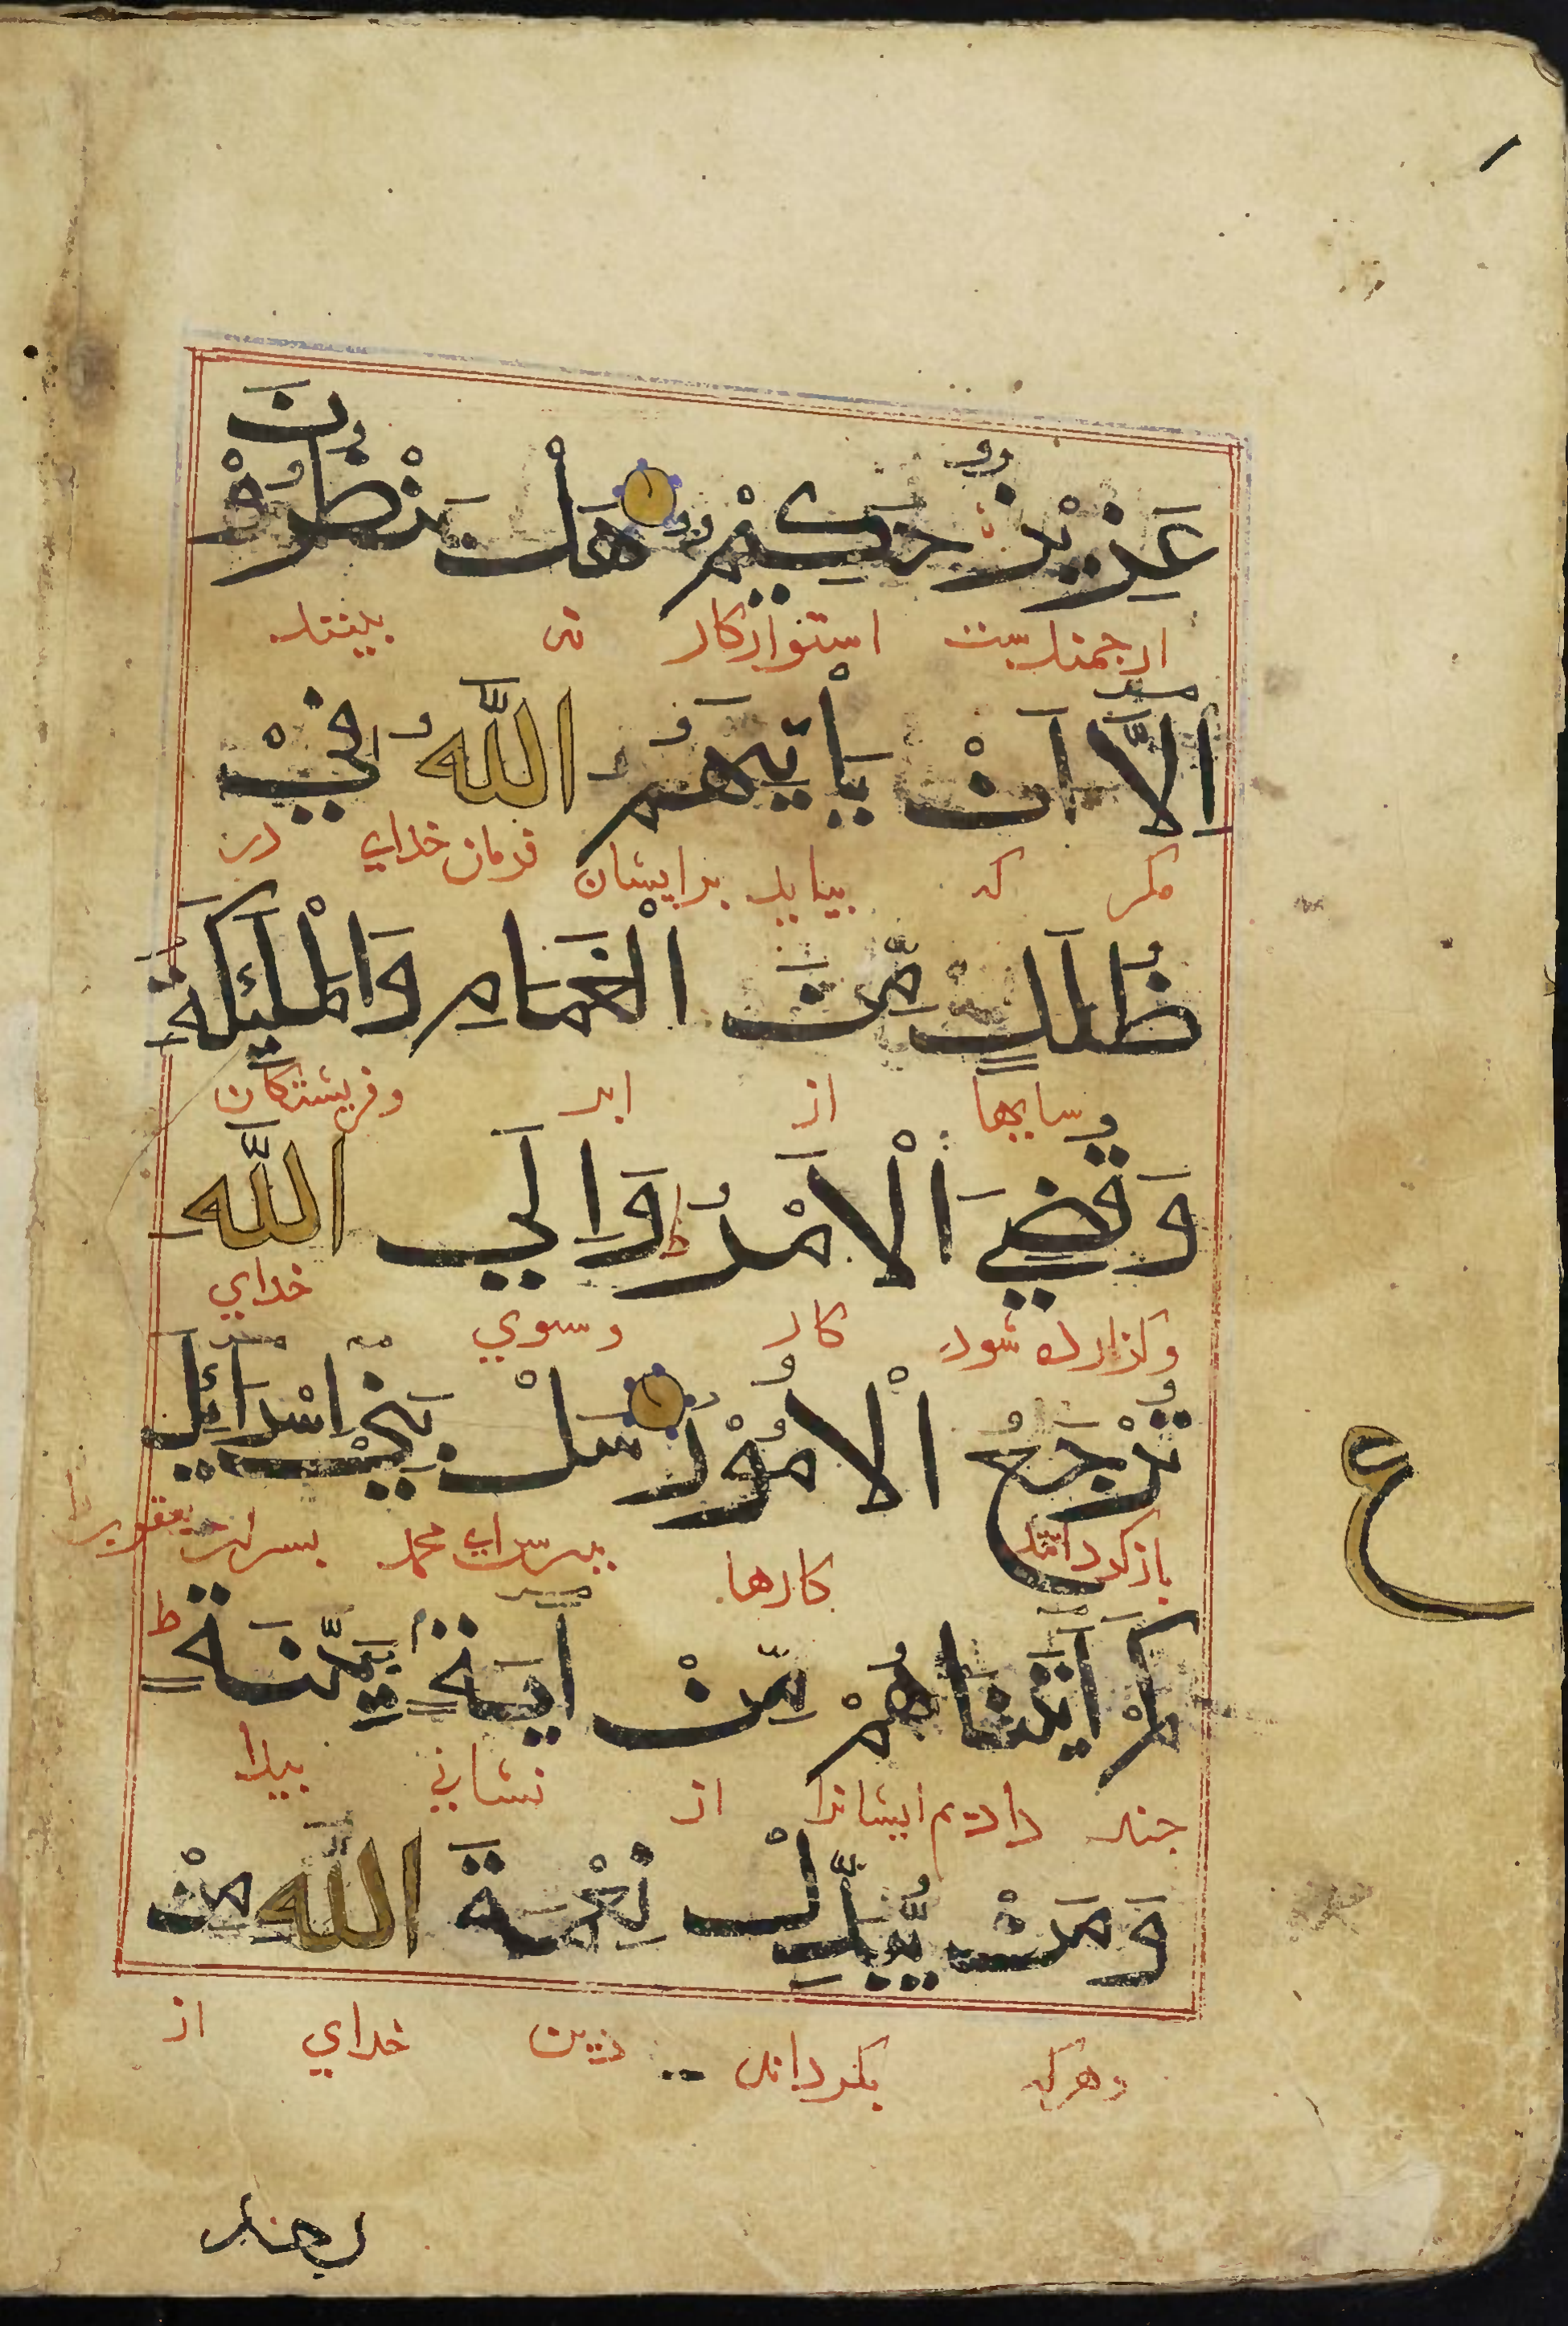 عَزِيْزٌ حَكِيْمٌ هَلْ يَنْظُرُوْنَ
ارجمندست استوارکار نی بینند
اِلَّا اَنْ يَأْتِيَهُمُ اللَّهُ فِيْ
مکر که بیاید برایشان فرمان خدای در
ظُلَلٍ مِّنَ الْغَمَامِ وَالْمَلٰئِكَةُ
سایها از ابر وفریشتکان
وَقُضِيَ الْاَمْرُ ط وَاِلَي اللَّهِ
وکذارده شود کار وسوی خدای
تُرْجَعُ الْاُمُوْرُ سَلْ بَنِيْ اِسْرَائِيلَ
باز کردانند کارها بپرس ای محمد پسران یعقوب را
كَمْ اٰتَيْنَاهُمْ مِّنْ اٰيَةٍ بَيِّنَةٍ ط
چند دادیم ایشانرا از نشانی پیدا
وَمَنْ يُّبَدِّلْ نِعْمَةَ اللَّهِ مِنْ
وهرکه بکرداند دین خدای از
ع